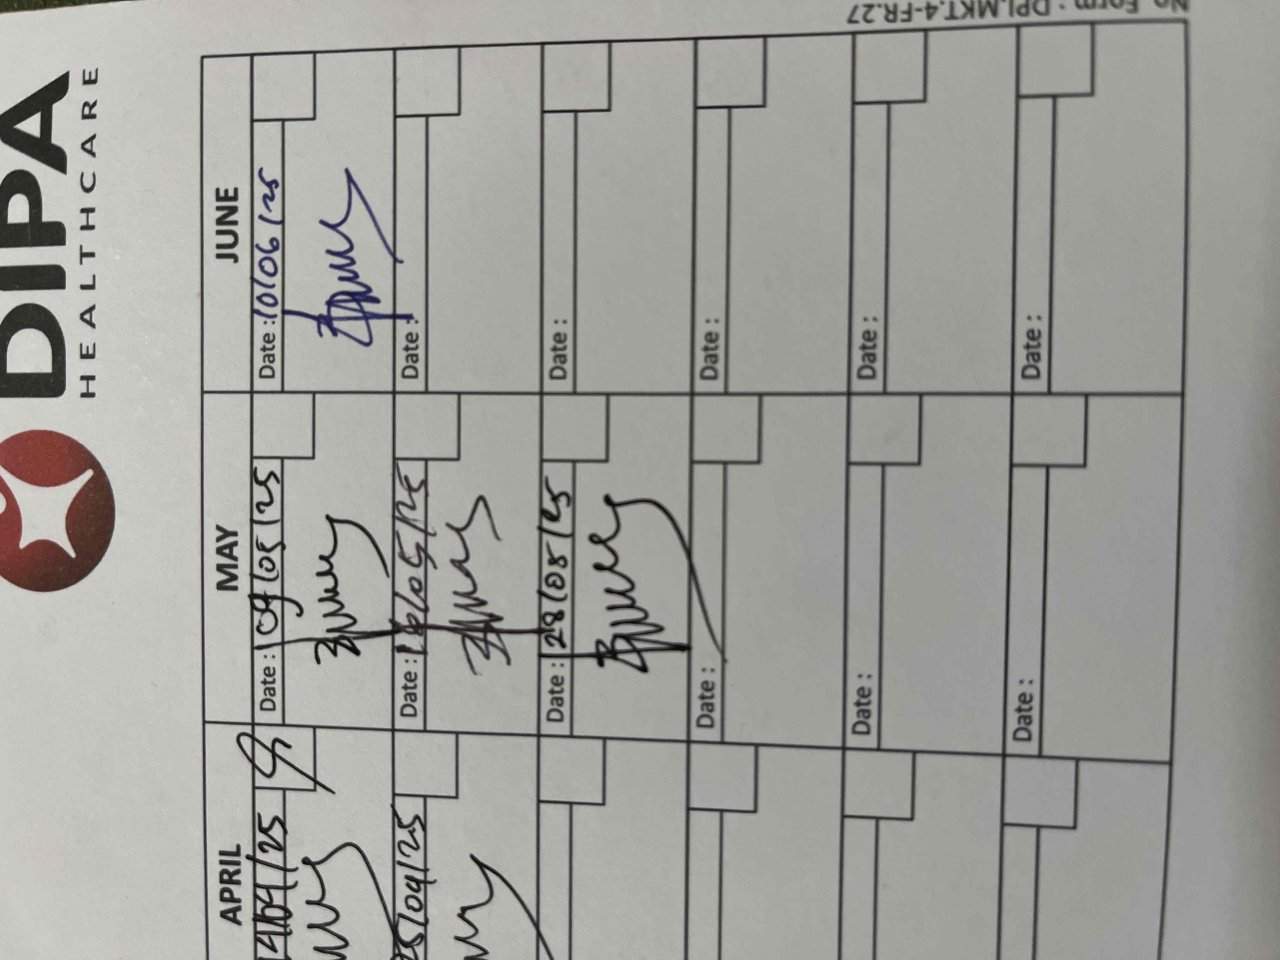 DIPA
HEALTHCARE
No. Form : DPI.MKT.4-FR.27
APRIL MAY JUNE
14/04/25 Date : 09/05/25 Date : 10/06/25
25/04/25 Date : 16/05/25 Date :
Date : 28/05/25 Date :
Date : Date :
Date : Date :
Date : Date :